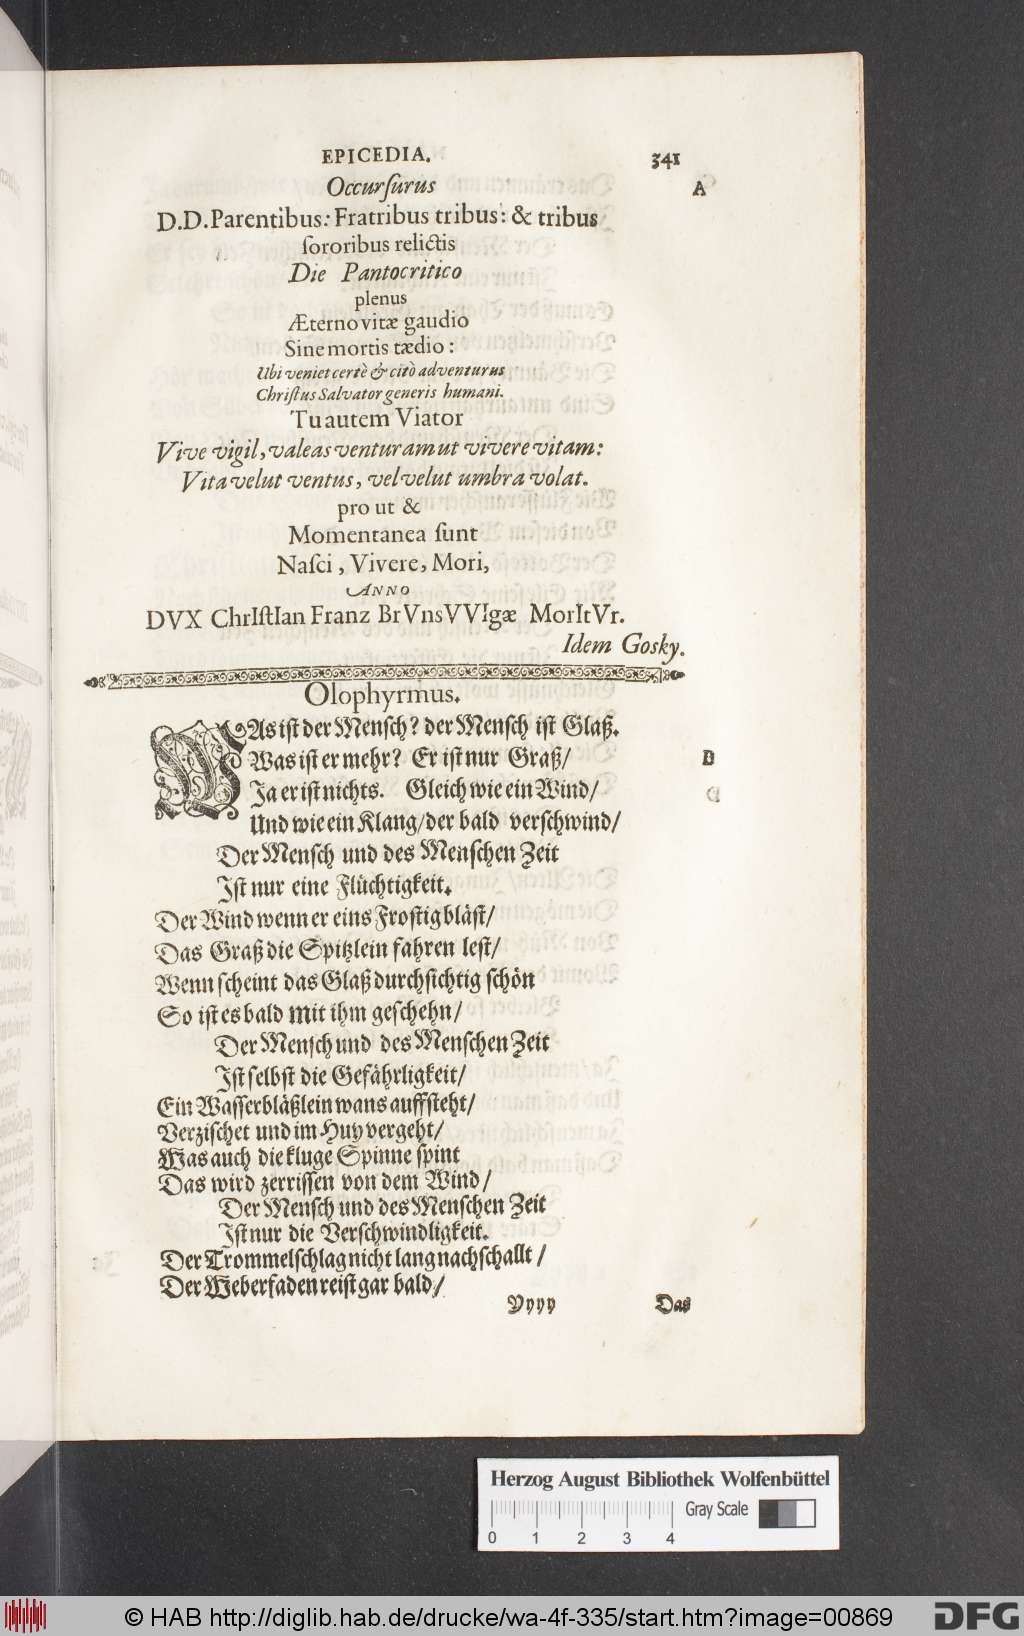 EPICEDIA. 341
Occurſurus A
D.D. Parentibus: Fratribus tribus: & tribus
ſororibus relictis
Die Pantocritico
plenus
Æterno vitæ gaudio
Sine mortis tædio:
Ubi veniet certè & citò adventurus
Chriſtus Salvator generis humani.
Tu autem Viator
Vive vigil, valeas venturam ut vivere vitam:
Vita velut ventus, vel velut umbra volat.
pro ut &
Momentanea ſunt
Naſci, Vivere, Mori,
ANNO
DVX ChrIſtIan Franz BrVnsVVIgæ MorItVr.
Idem Gosky.
Olophyrmus.
WAs iſt der Menſch? der Menſch iſt Glaß.
Was iſt er mehr? Er iſt nur Graß/ B
Ja er iſt nichts. Gleich wie ein Wind/
Und wie ein Klang/ der bald verſchwind/
Der Menſch und des Menſchen Zeit
Iſt nur eine Flüchtigkeit.
Der Wind wenn er eins Froſtig bläſt/
Das Graß die Spitzlein fahren leſt/
Wenn ſcheint das Glaß durchſichtig ſchön
So iſt es bald mit ihm geſchehn/
Der Menſch und des Menſchen Zeit
Iſt ſelbſt die Gefährligkeit/
Ein Waſſerbläßlein wans auffſteht/
Verziſchet und im Huy vergeht/
Was auch die kluge Spinne ſpint
Das wird zerriſſen von dem Wind/
Der Menſch und des Menſchen Zeit
Iſt nur die Verſchwindligkeit.
Der Trommelſchlag nicht lang nachſchallt/
Der Weberfaden reiſt gar bald/
Yyyy Das
Herzog August Bibliothek Wolfenbüttel
Gray Scale
0 1 2 3 4
© HAB http://diglib.hab.de/drucke/wa-4f-335/start.htm?image=00869 DFG